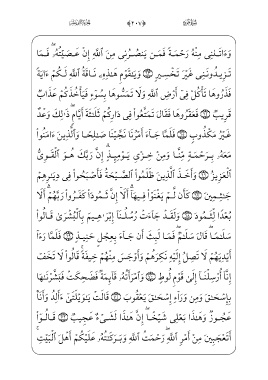 وَءَاتَىٰنِى مِنْهُ رَحْمَةً فَمَن يَنصُرُنِى مِنَ ٱللَّهِ إِنْ عَصَيْتُهُۥ فَمَا
تَزِيدُونَنِى غَيْرَ تَخْسِيرٍ وَيَٰقَوْمِ هَٰذِهِۦ نَاقَةُ ٱللَّهِ لَكُمْ ءَايَةً
فَذَرُوهَا تَأْكُلْ فِى أَرْضِ ٱللَّهِ وَلَا تَمَسُّوهَا بِسُوٓءٍ فَيَأْخُذَكُمْ عَذَابٌ
قَرِيبٌ فَعَقَرُوهَا فَقَالَ تَمَتَّعُوا۟ فِى دَارِكُمْ ثَلَٰثَةَ أَيَّامٍ ذَٰلِكَ وَعْدٌ
غَيْرُ مَكْذُوبٍ فَلَمَّا جَآءَ أَمْرُنَا نَجَّيْنَا صَٰلِحًا وَٱلَّذِينَ ءَامَنُوا۟
مَعَهُۥ بِرَحْمَةٍ مِّنَّا وَمِنْ خِزْىِ يَوْمِئِذٍ إِنَّ رَبَّكَ هُوَ ٱلْقَوِىُّ
ٱلْعَزِيزُ وَأَخَذَ ٱلَّذِينَ ظَلَمُوا۟ ٱلصَّيْحَةُ فَأَصْبَحُوا۟ فِى دِيَٰرِهِمْ
جَٰثِمِينَ كَأَن لَّمْ يَغْنَوْا۟ فِيهَآ أَلَآ إِنَّ ثَمُودًا كَفَرُوا۟ رَبَّهُمْ أَلَا
بُعْدًا لِّثَمُودَ وَلَقَدْ جَآءَتْ رُسُلُنَآ إِبْرَٰهِيمَ بِٱلْبُشْرَىٰ قَالُوا۟
سَلَٰمًا قَالَ سَلَٰمٌ فَمَا لَبِثَ أَن جَآءَ بِعِجْلٍ حَنِيذٍ فَلَمَّا رَءَآ
أَيْدِيَهُمْ لَا تَصِلُ إِلَيْهِ نَكِرَهُمْ وَأَوْجَسَ مِنْهُمْ خِيفَةً قَالُوا۟ لَا تَخَفْ
إِنَّآ أُرْسِلْنَآ إِلَىٰ قَوْمِ لُوطٍ وَٱمْرَأَتُهُۥ قَآئِمَةٌ فَضَحِكَتْ فَبَشَّرْنَٰهَا
بِإِسْحَٰقَ وَمِن وَرَآءِ إِسْحَٰقَ يَعْقُوبَ قَالَتْ يَٰوَيْلَتَىٰٓ ءَأَلِدُ وَأَنَا۠
عَجُوزٌ وَهَٰذَا بَعْلِى شَيْخًا إِنَّ هَٰذَا لَشَىْءٌ عَجِيبٌ قَالُوٓا۟
أَتَعْجَبِينَ مِنْ أَمْرِ ٱللَّهِ رَحْمَتُ ٱللَّهِ وَبَرَكَٰتُهُۥ عَلَيْكُمْ أَهْلَ ٱلْبَيْتِ